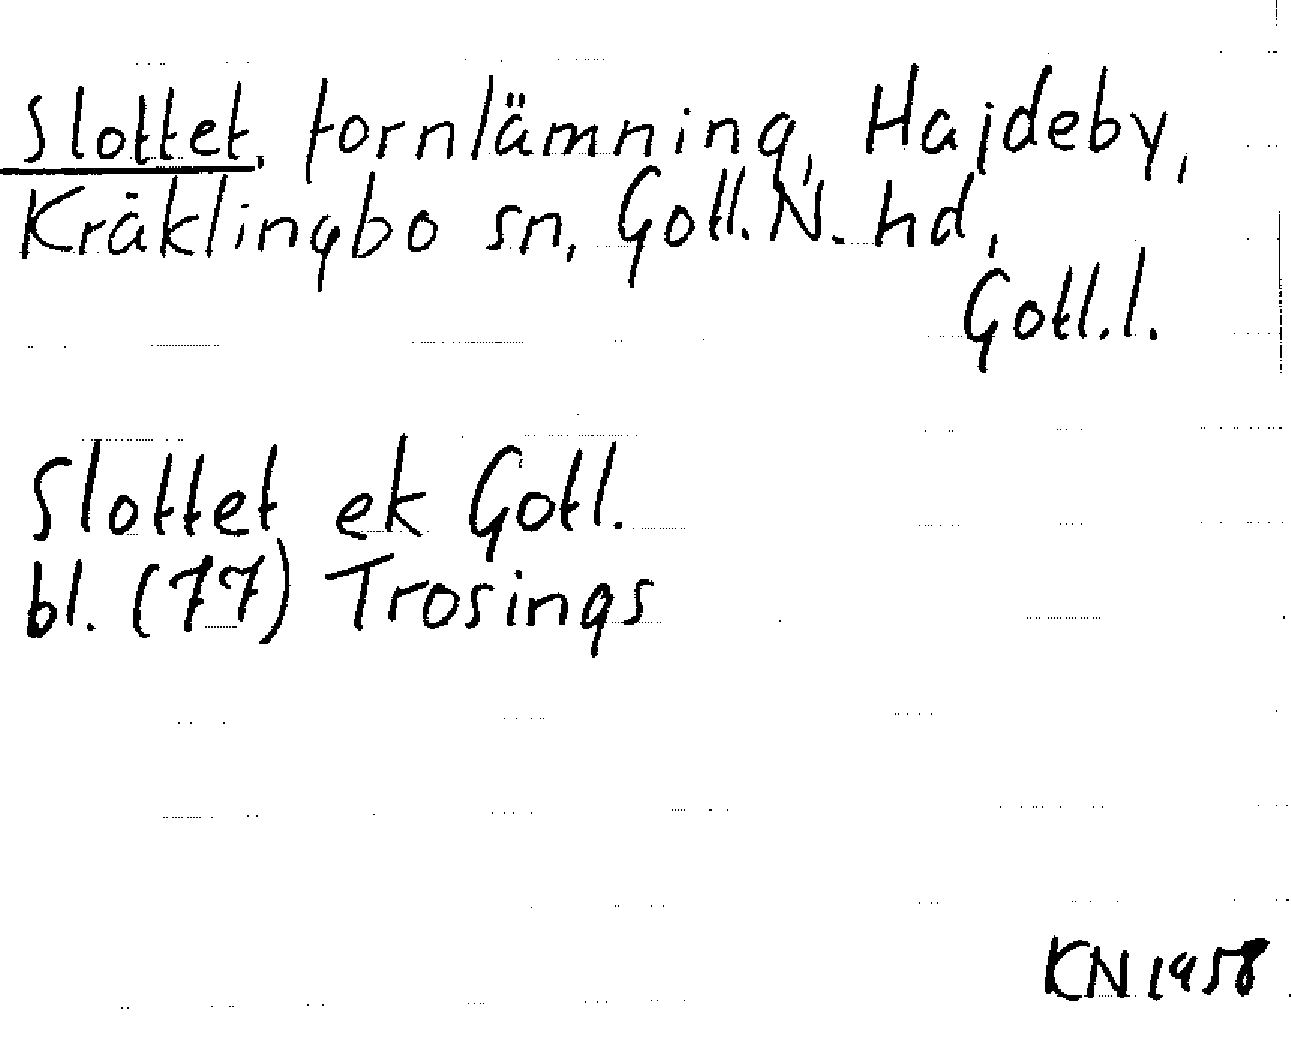 Slottet, fornlämning, Hajdeby,
Kräklingbo sn, Gotl. N. hd,
Gotl. l.
Slottet ek Gotl.
bl. (77) Trosings
KN 1958